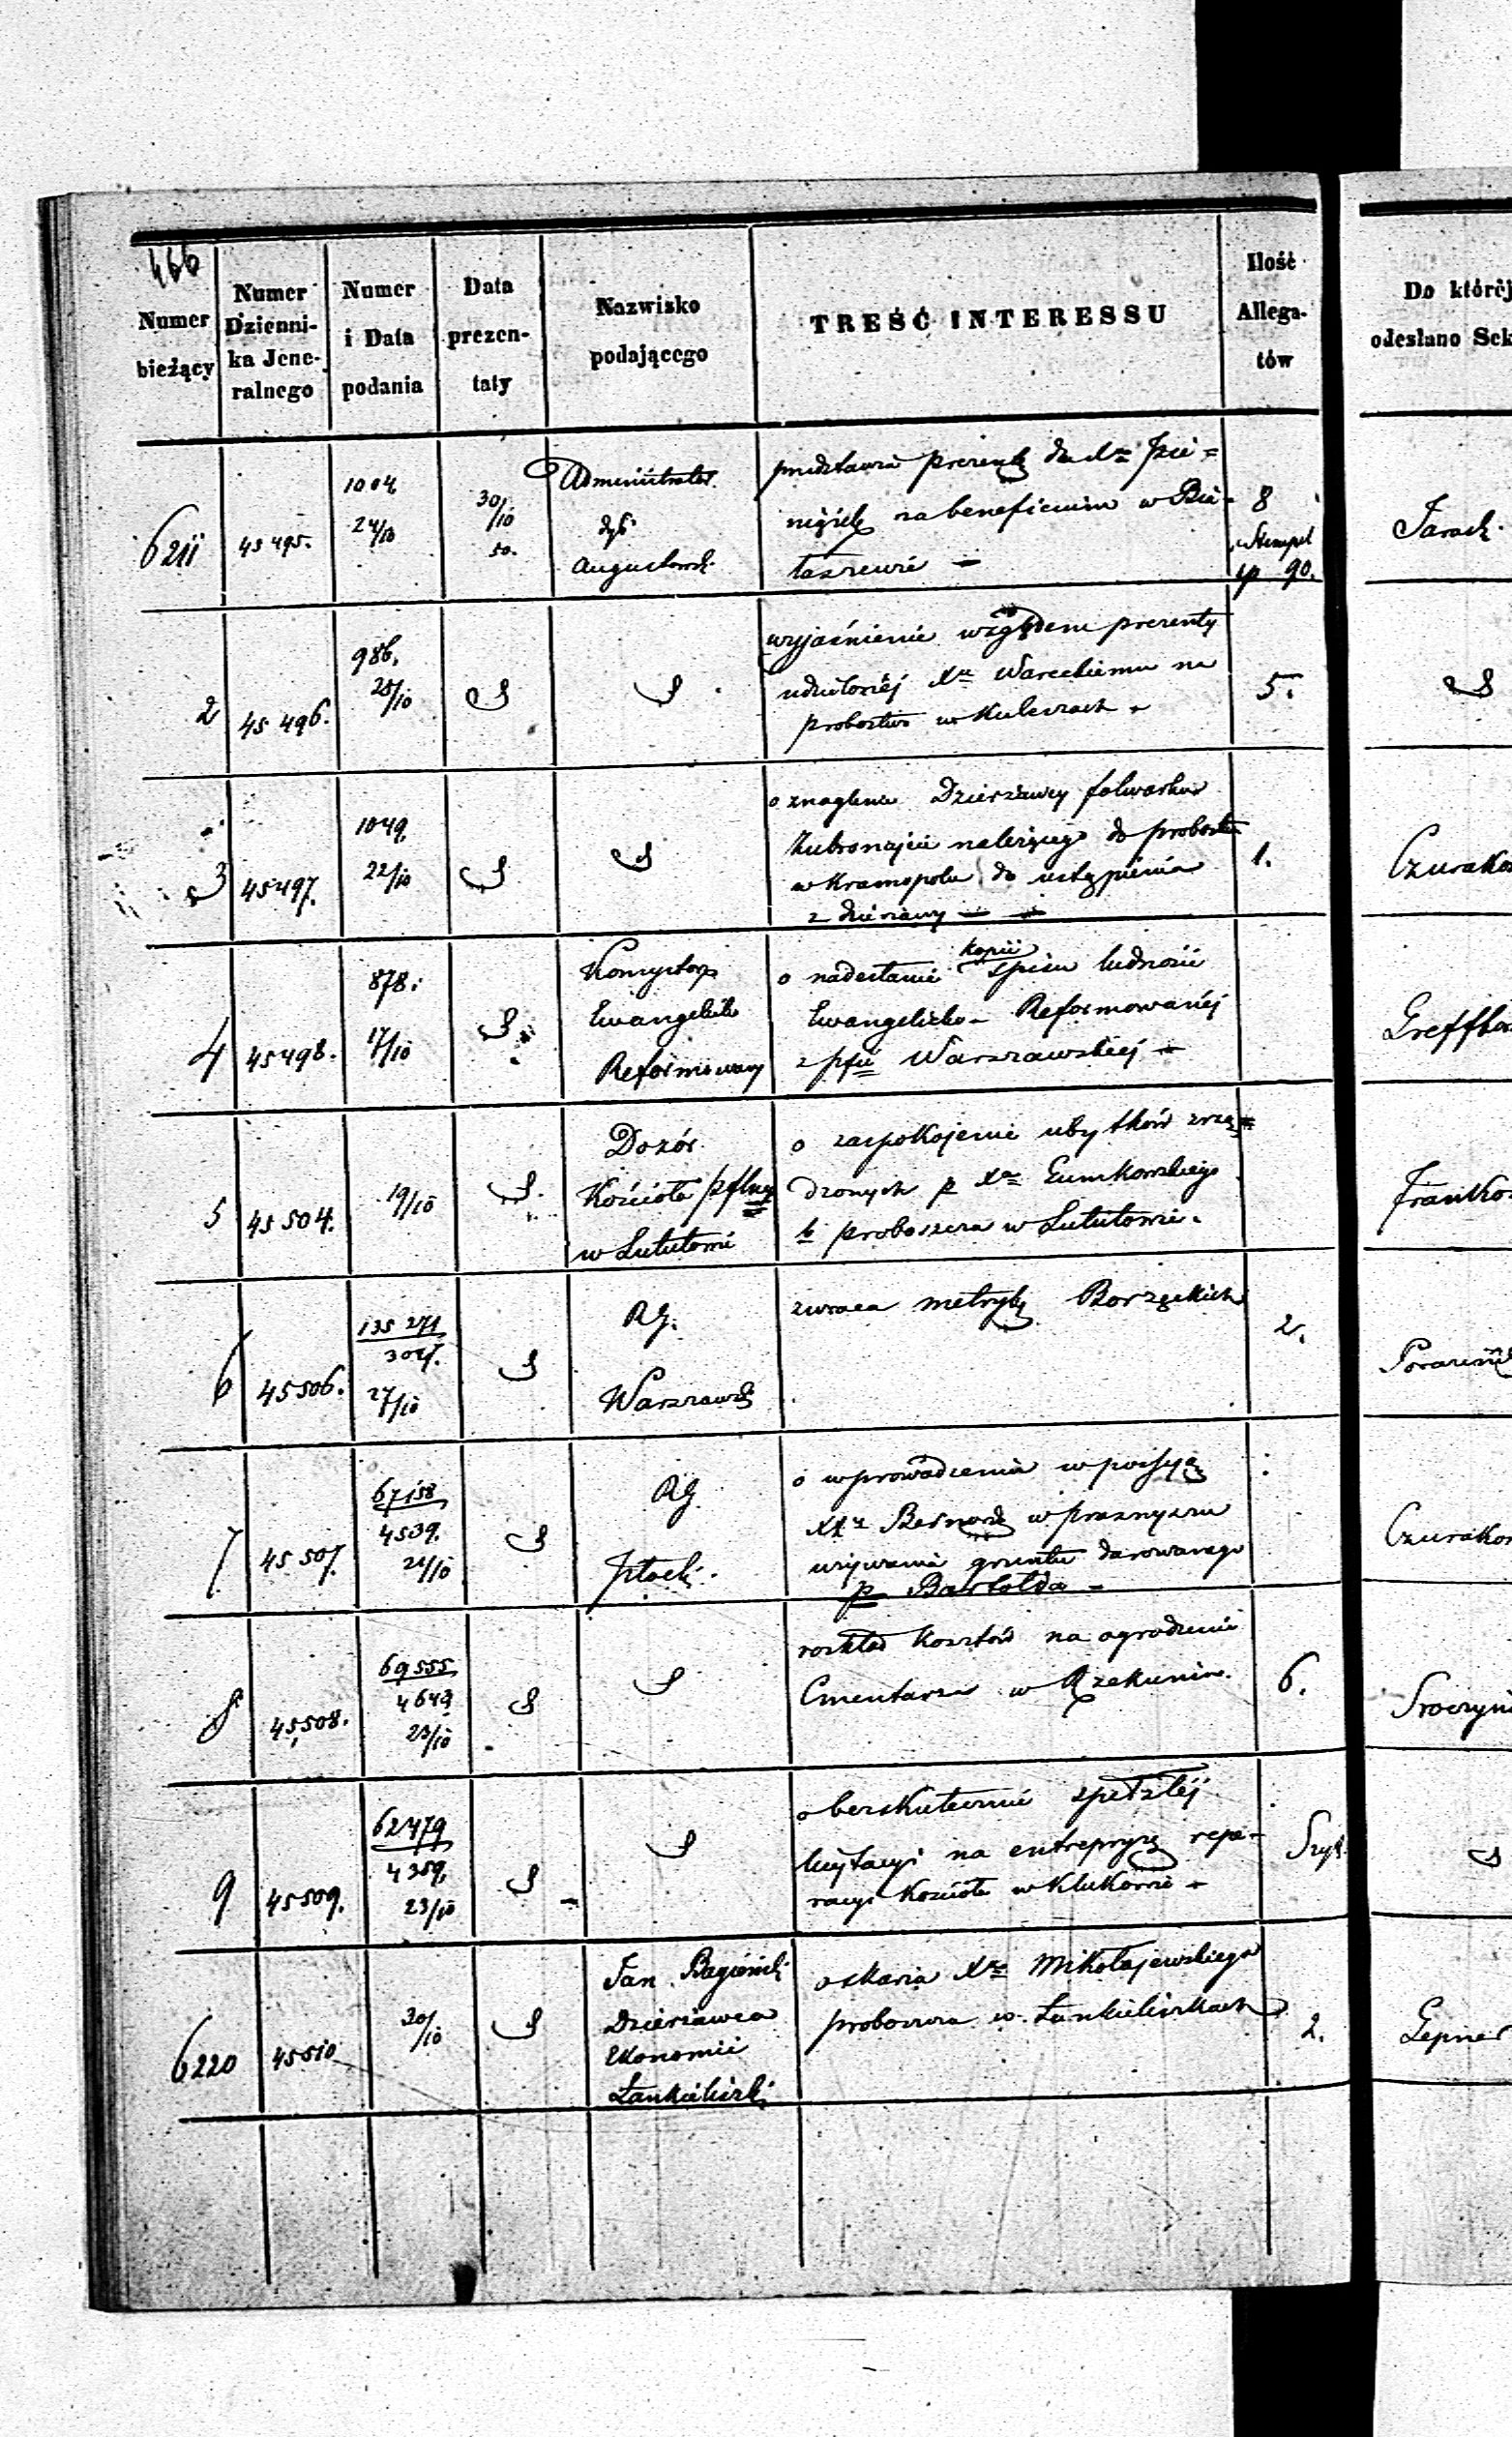 466
Numer bieżący
Numer Dzienni-
ka Jene-
ralnego
Numer i Data podania
Data prezen-
taty
Nazwisko podającego
TREŚĆ INTERESSU
Ilość Allega-
tów
Do którėj
odesłano Sek
6211 45495. 1004. 24/10 30/10 50. Administrator dyec. Augustowsk.
przedstawia prezentę dla Xa
na beneficium w
8
Stempel
zp 90.
2 45496. 986. 25/10
wyjaśnienie względem prezenty
udzielonéj Xu Wareckiemu na
probostwo w Kuleszach
5.
3 45497. 1049. 22/10
o znaglenie Dzierżawcy folwarku
należącego do probostw
w Krasnopolu do ustąpienia
z dzierżawy
1.
4 45498. 878. 17/10
Konsystorz
Ewangelicko
Reformowany
o nadesłanie kopii spisu ludności
Ewangelicko-Reformowanéj
z pfii Warszawskiej
Greffko
5 45504. 19/10
Dozór
Kościoła pflny
w Lututowie
o zaspokojenie ubytków zrzą=
dzonych p Xa
b proboszcza w Lututowie.
Franko
6 45506. 135271 3027. 27/10
RG.
Warszawsk
zwraca metrykę Borzęckich
2.
7 45507. 67158 4539. 21/10
RG
Płock.
o wprowadzenie w possyą
XX Bernard w Prasnyszu
używania gruntu darowanego
p Bartolda
Czurako
8 45508. 69555 4643 23/10
rozkład kosztów na ogrodzenie
Cmentarza w Rzekuniu.
6.
9 45509. 62479 4359. 23/10
o bezskutecznie spełzłéj
licytacyi na entrepryzę repa-
racyi Kościoła w Klukowie
Szyk.
6220 45510 30/10
Jan
Dzierżawca
Ekonomii
Łankieliszki
oskarża Xa Mikołajewskiego
proboszcza w Łankieliszkach
2.
Lepner